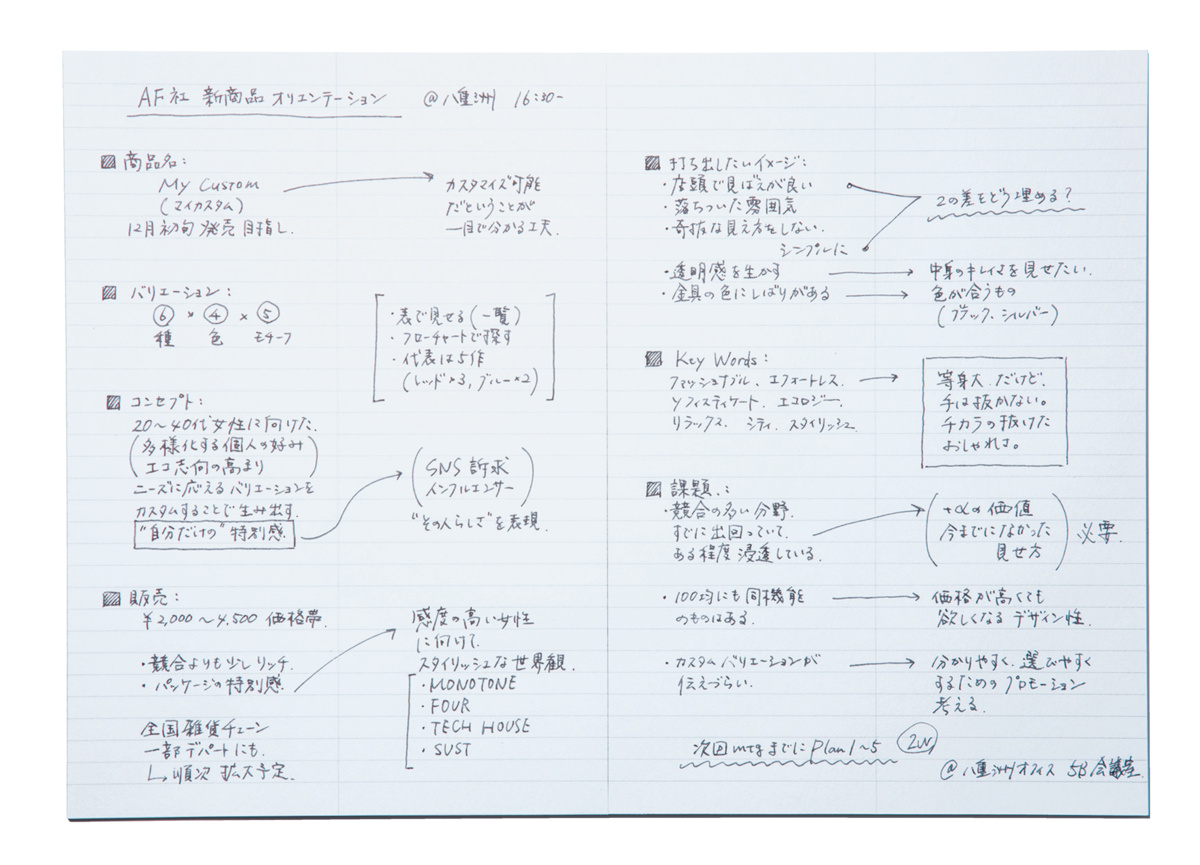 AF社 新商品 オリエンテーション @八重洲 16:30-
▨ 商品名:
My Custom
(マイカスタム)
12月初旬 発売目指し.
カスタマイズ可能
だということが
一目で分かる工夫.
▨ バリエーション:
⑥ × ④ × ⑤
種 色 モチーフ
・表で見せる(一覧)
・フローチャートで探す
・代表は5作
(レッド×3, ブルー×2)
▨ コンセプト:
20〜40代女性に向けた.
(多様化する個人の好み
エコ志向の高まり)
ニーズに応えるバリエーションを
カスタムすることで生み出す.
"自分だけの"特別感.
(SNS 訴求
インフルエンサー)
"その人らしさ"を表現.
▨ 販売:
¥2,000〜4,500 価格帯.
・競合よりも少しリッチ.
・パッケージの特別感.
全国雑貨チェーン
一部デパートにも.
↳順次 拡大予定.
感度の高い女性
に向けて.
スタイリッシュな世界観.
・MONOTONE
・FOUR
・TECH HOUSE
・SUST
▨ 打ち出したいイメージ:
・店頭で見ばえが良い
・落ちついた雰囲気
・奇抜な見え方をしない.
シンプルに
2の差をどう埋める?
・透明感を生かす → 中身のキレイさを見せたい.
・金具の色にしばりがある → 色が合うもの
(ブラック、シルバー)
▨ Key Words:
ファッショナブル、エフォートレス.
ソフィスティケート、エコロジー、
リラックス、シティ、スタイリッシュ
等身大、だけど、
手は抜かない。
チカラの抜けた
おしゃれさ。
▨ 課題.:
・競合の多い分野.
すでに出回っていて.
ある程度 浸透している.
(+αの価値
今までになかった
見せ方) 必要.
・100均にも同機能
のものはある.
価格が高くても
欲しくなるデザイン性.
・カスタムバリエーションが
伝えづらい.
分かりやすく、選びやすく
するためのプロモーション
考える.
次回mtgまでにPlan1〜5 2W
@八重洲オフィス 5B会議室.